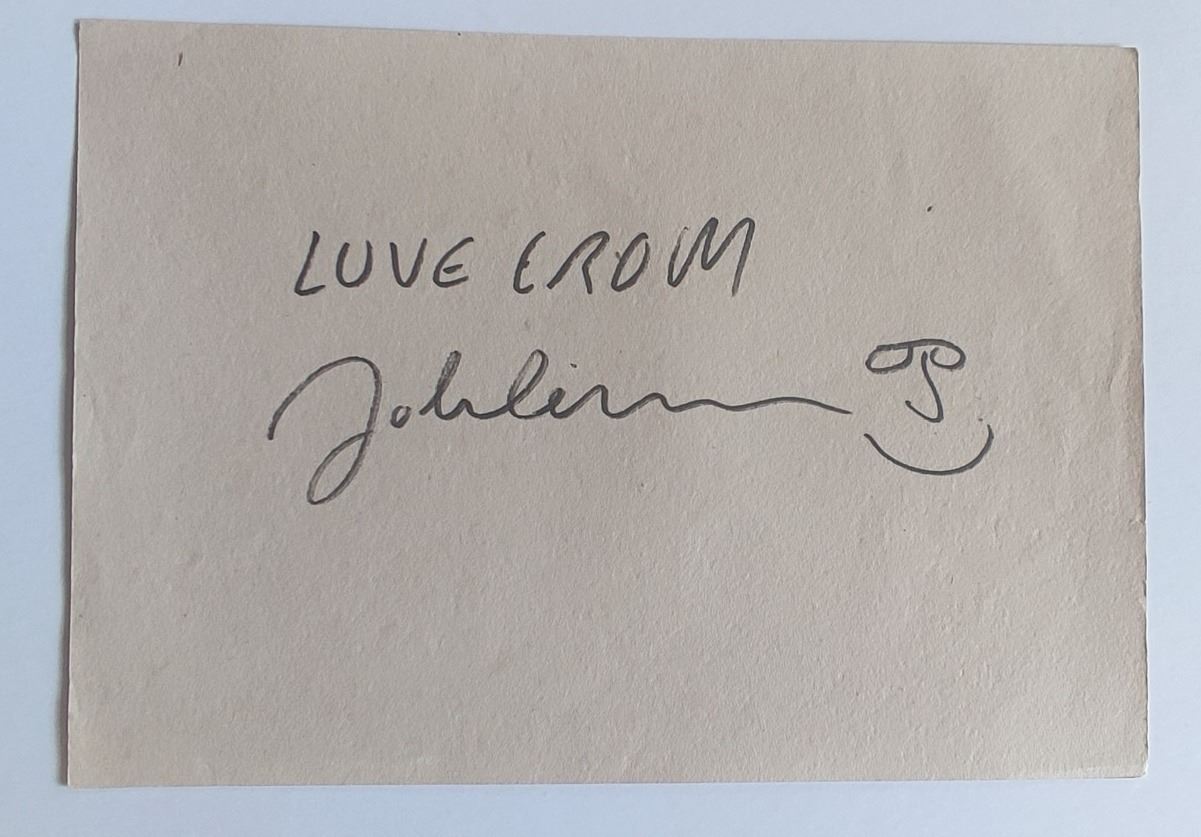 LOVE FROM
John Lennon